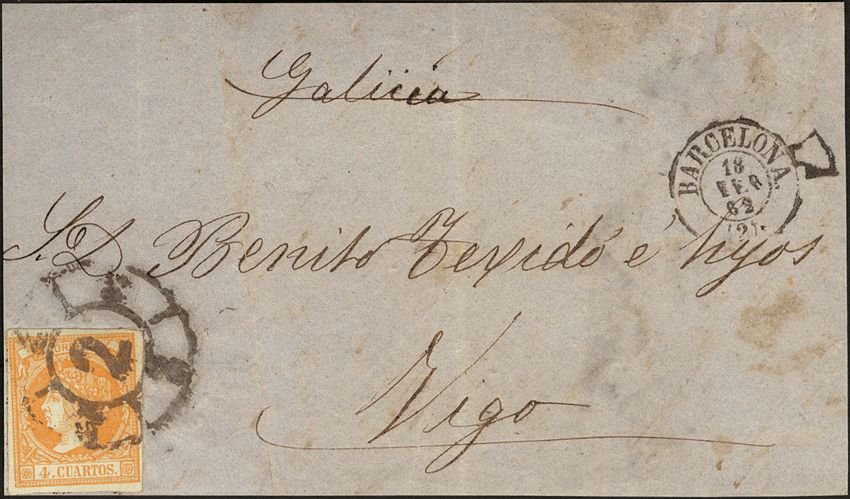 Galicia
BARCELONA.
18
FEB
62
(2).
S.D. Benito Texidó é hijos
Vigo
2
4 CUARTOS.